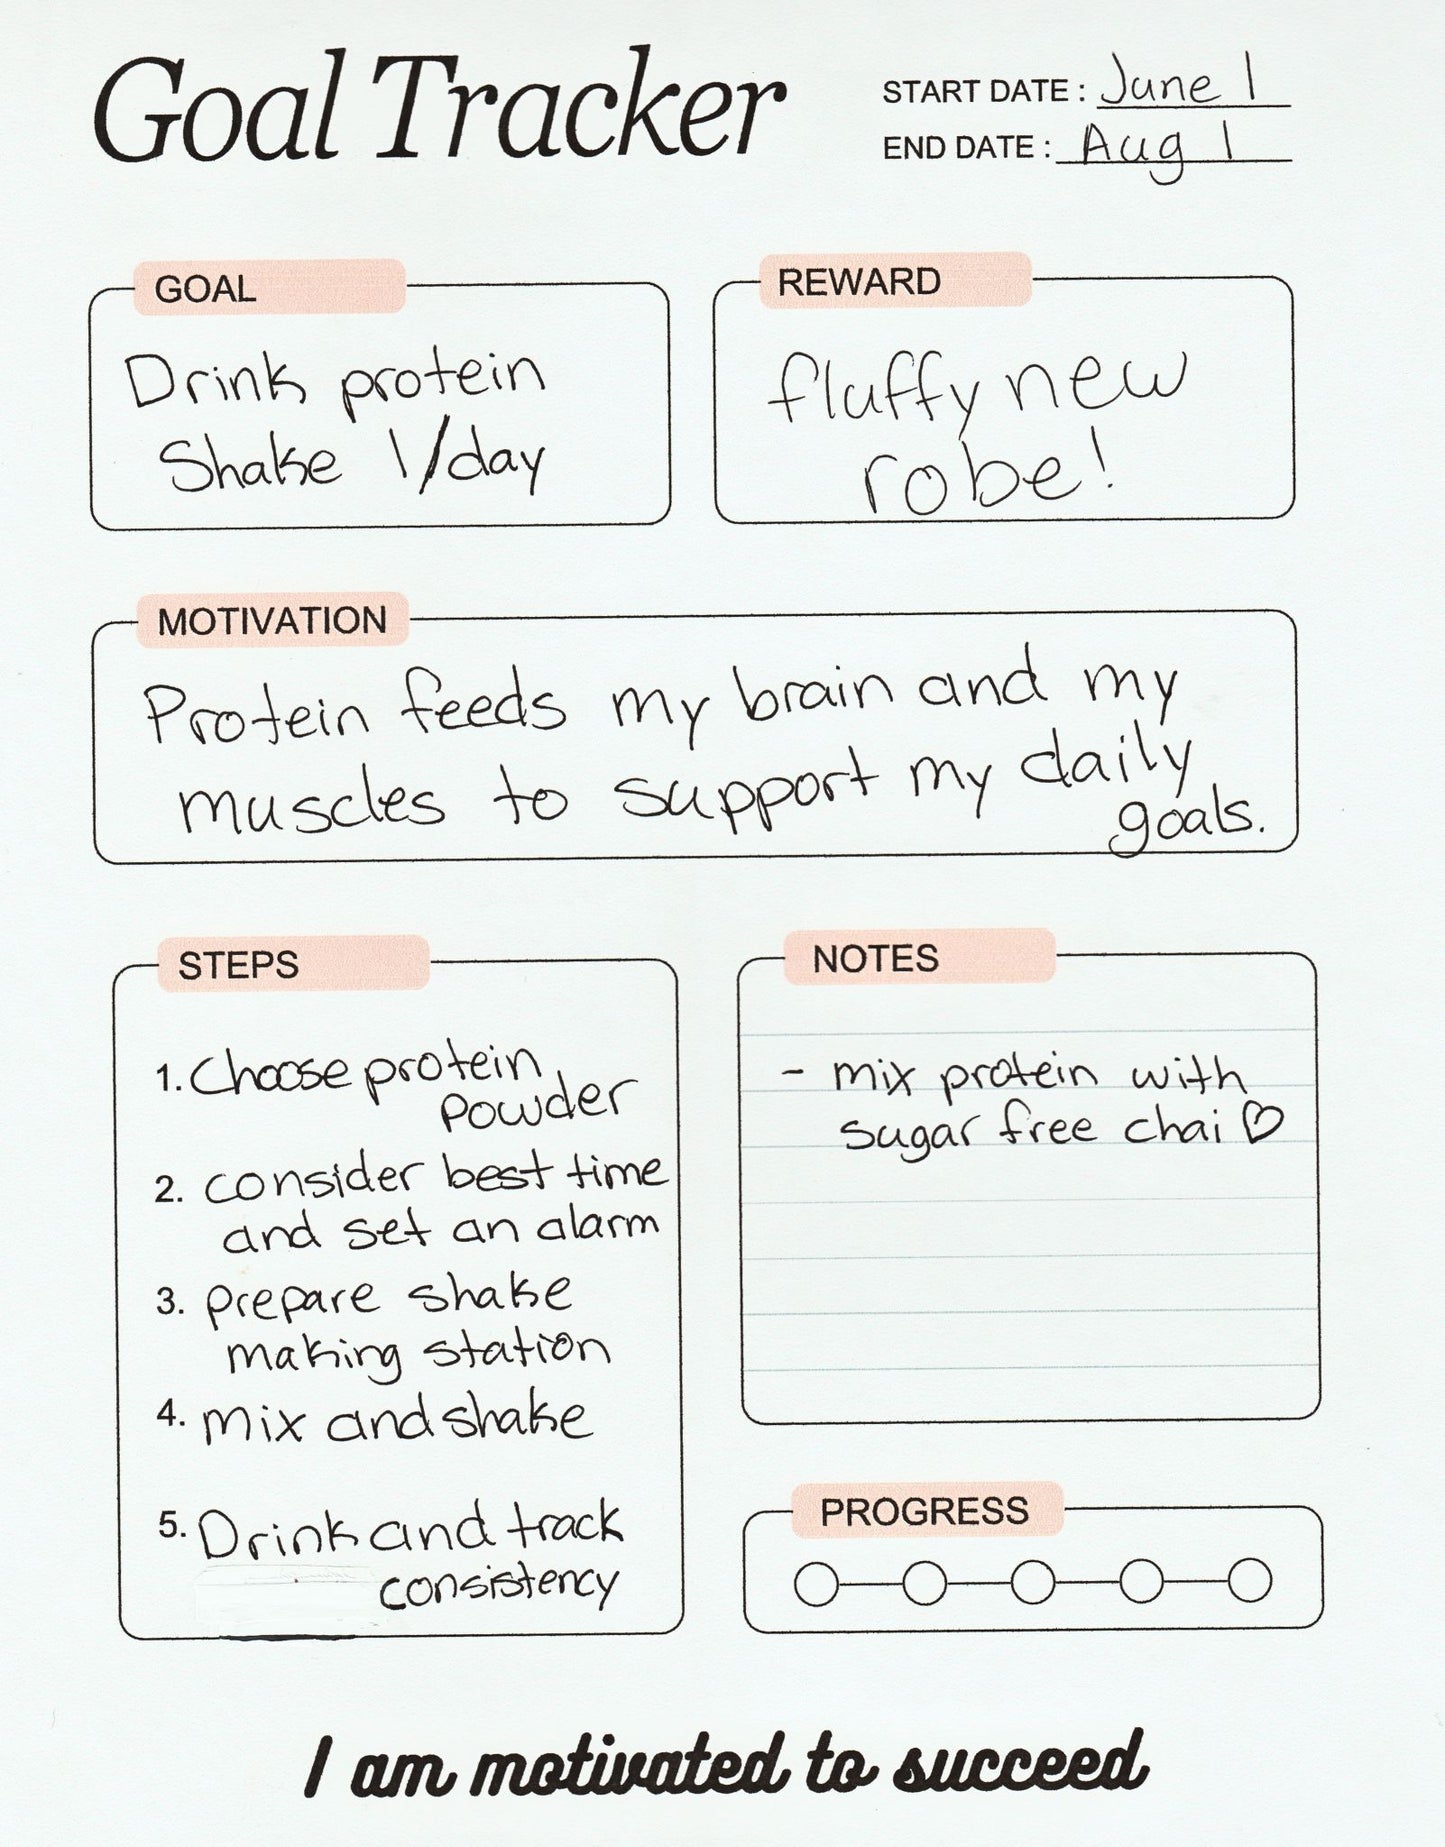 Goal Tracker
START DATE : June 1
END DATE : Aug 1
GOAL
Drink protein
Shake 1/day
REWARD
fluffy new
robe!
MOTIVATION
Protein feeds my brain and my
muscles to support my daily
goals.
STEPS
1. Choose protein
powder
2. consider best time
and set an alarm
3. prepare shake
making station
4. mix and shake
5. Drink and track
consistency
NOTES
- mix protein with
sugar free chai ♡
PROGRESS
I am motivated to succeed